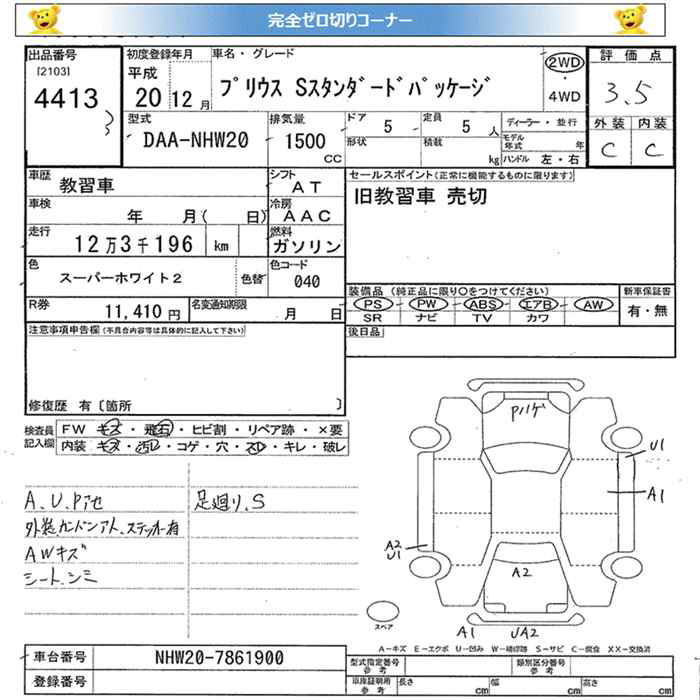 完全ゼロ切りコーナー
出品番号
[2103]
4413
初度登録年月
平成
20 12 月
車名・グレード
プリウス Sスタンダードパッケージ
2WD
4WD
評価点
3.5
外装 内装
C C
型式
DAA-NHW20
排気量
1500
CC
ドア 5
形状
定員 5 人
積載 kg
ディーラー・並行
モデル年式 年
ハンドル 左・右
車歴
教習車
シフト
AT
車検
年 月( 日)
冷房
AAC
走行
12万3千196 km
燃料
ガソリン
色
スーパーホワイト2
色替
色コード
040
R券
11,410 円
名変通知期限
月 日
セールスポイント(正常に機能するものに限ります)
旧教習車 売切
装備品(純正品に限り○をつけてください)
PS PW ABS エアB AW
SR ナビ TV カワ
新車保証書
有・無
後日品
注意事項申告欄(不具合内容等は具体的に記入して下さい)
修復歴 有〔箇所 〕
検査員
記入欄
FW キズ・飛石・ヒビ割・リペア跡・×要
内装 キズ・汚レ・コゲ・穴・スレ・キレ・破レ
A、U、Pアセ
足廻リ、S
AWキズ
U1
A1
A2
U1
A2
A1
UA2
スペア
A-キズ E-エクボ U-凹み W-補修跡 S-サビ C-腐食 XX-交換済
車台番号
NHW20-7861900
登録番号
型式指定番号
参考
類別区分番号
参考
車庫証明用
参考
長さ cm
幅 cm
高さ cm